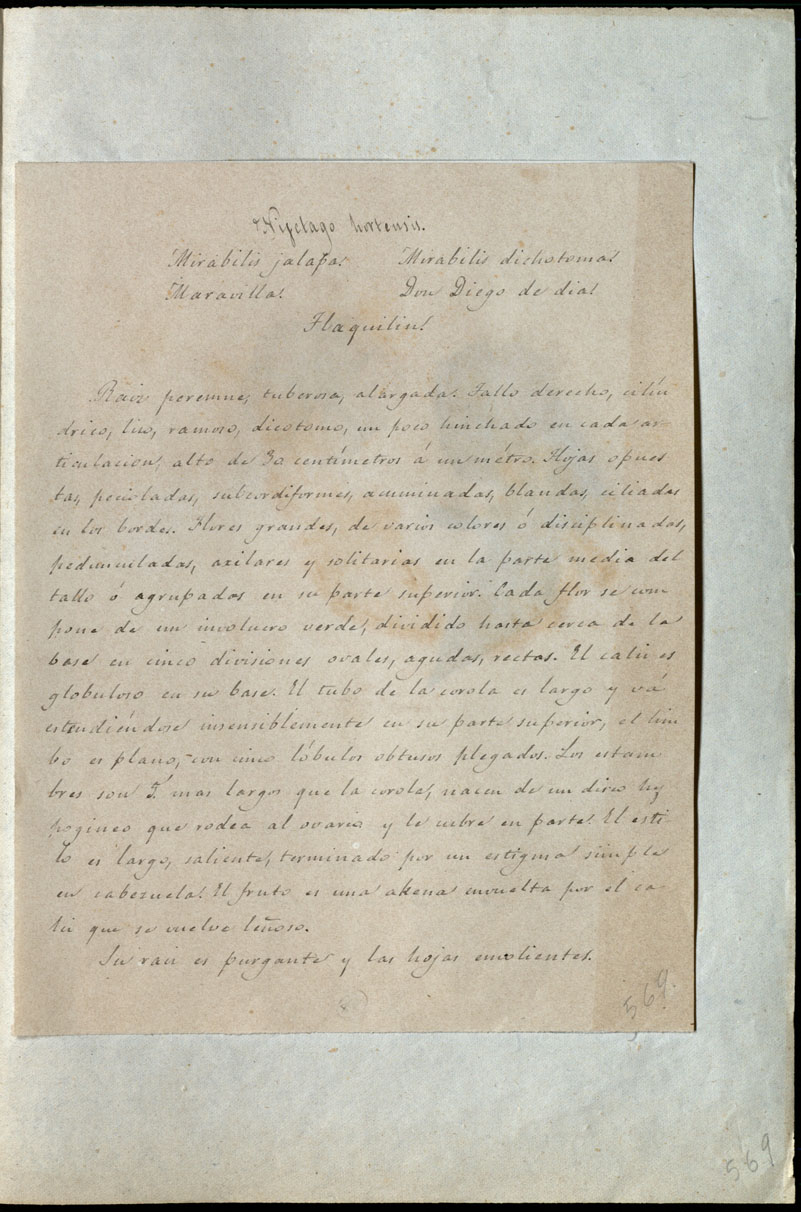 Nyctago hortensis.
Mirabilis jalapa. Mirabilis dichotoma.
Maravilla. Don Diego de dia.
Tlaquilin.
Raiz perenne, tuberosa, alargada. Tallo derecho, cilín
drico, liso, ramoso, dicotomo, un poco hinchado en cada ar-
ticulacion, alto de 30 centímetros á un métro. Hojas opues
tas, pecioladas, subcordiformes, acuminadas, blandas, ciliadas
en los bordes. Flores grandes, de varios colores ó disciplinadas,
pedunculadas, axilares y solitarias en la parte media del
tallo ó agrupadas en su parte superior. Cada flor se com
pone de un involucro verde, dividido hasta cerca de la
base en cinco divisiones ovales, agudas, rectas. El caliz es
globuloso en su base. El tubo de la corola es largo y vá
estendiéndose insensiblemente en su parte superior, el lim
bo es plano, con cinco lóbulos obtusos plegados. Los estam
bres son 5. mas largos que la corola, nacen de un disco hy
pogineo que rodea al ovario y le cubre en parte. El esti-
lo es largo, saliente, terminado por un estigma simple
en cabezuela. El fruto es una akena envuelta por el ca-
liz que se vuelve leñoso.
Su raiz es purgante y las hojas emolientes.
569.
569